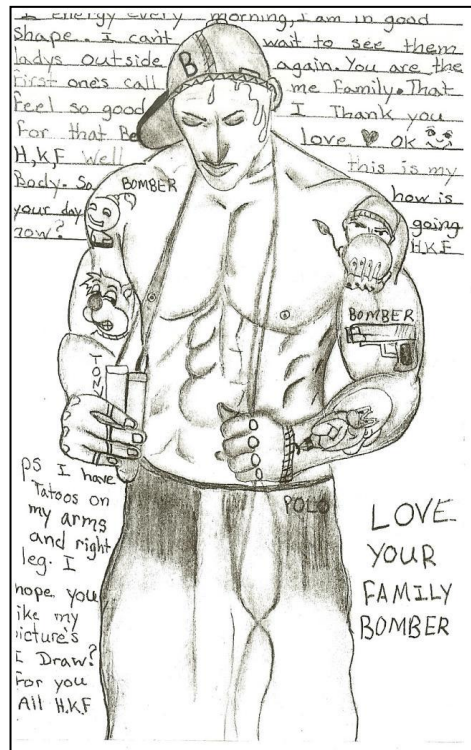 I energy every morning, I am in good
Shape. I can't wait to see them
ladys outside again. You are the
First one's call me Family. That
Feel so good I Thank you
For that Be love. OK
H,K,F Well this is my
Body. So how is
your day going
now? H.K.F
B
BOMBER
BOMBER
TONY
POLO
ps I have
Tatoos on
my arms
and right
leg. I
hope you
like my
picture's
I Draw?
For you
All H.K.F
LOVE
YOUR
FAMILY
BOMBER